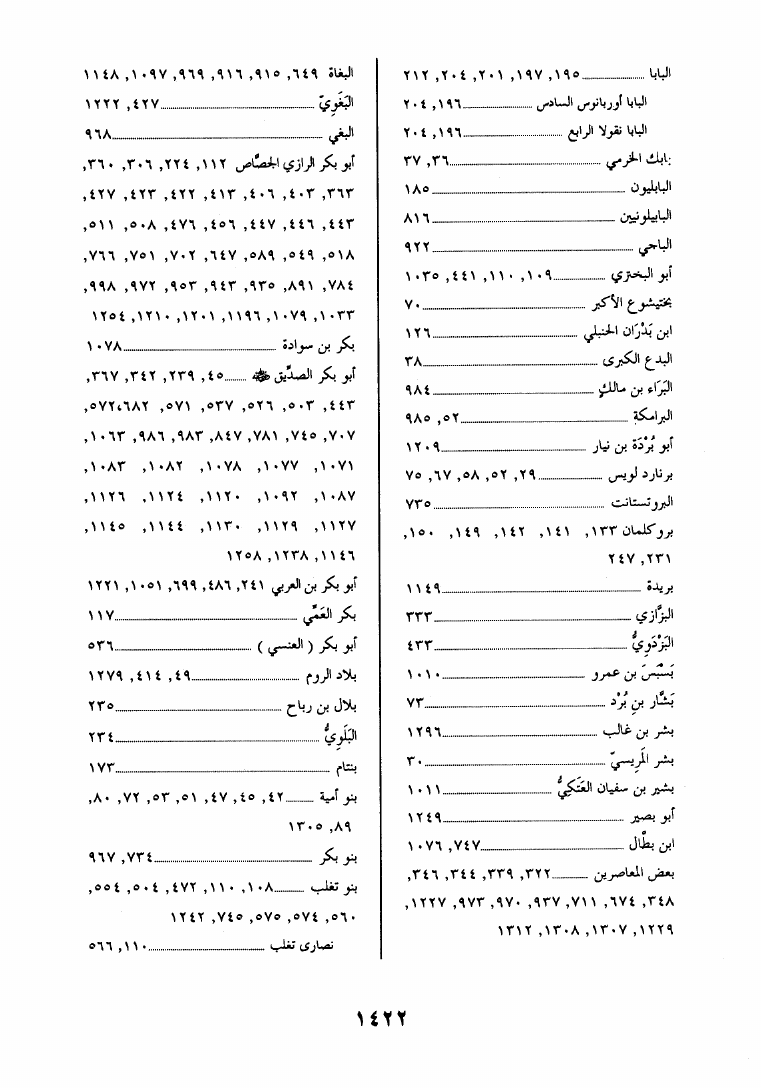 البابا ١٩٥, ١٩٧, ٢٠١, ٢٠٤, ٢١٢
البابا أوربانوس السادس ١٩٦, ٢٠٤
البابا نقولا الرابع ١٩٦, ٢٠٤
بابك الخرمي ٣٦, ٣٧
البابليون ١٨٥
البابيلونيين ٨١٦
الباجي ٩٢٢
أبو البختري ١٠٩, ١١٠, ٤٤١, ١٠٣٥
بختيشوع الأكبر ٧٠
ابن بَدْرَان الحنبلي ١٢٦
البدع الكبرى ٣٨
البَرَاء بن مالكٍ ٩٨٤
البرامكة ٥٢, ٩٨٥
أبو بُرْدَة بن نيار ١٢٠٩
برنارد لويس ٢٩, ٥٢, ٥٨, ٦٧, ٧٥
البروتستانت ٧٣٥
بروكلمان ١٣٣, ١٤١, ١٤٢, ١٤٩, ١٥٠,
٢٣١, ٢٤٧
بريدة ١١٤٩
البزَّازي ٣٣٣
البَزْدَوِيُّ ٤٣٣
بَسْبَسَ بن عمرو ١٠١٠
بَشَّار بن بُرْد ٧٣
بشر بن غالب ١٢٩٦
بشر المَرِيسيّ ٣٠
بشير بن سفيان العَتَكِيُّ ١٠١١
أبو بصير ١٢٤٩
ابن بطَّال ٧٤٧, ١٠٧٦
بعض المعاصرين ٣٢٢, ٣٣٩, ٣٤٤, ٣٤٦,
٣٤٨, ٦٧٤, ٧١١, ٩٣٧, ٩٧٠, ٩٧٣, ١٢٢٧,
١٢٢٩, ١٣٠٧, ١٣٠٨, ١٣١٢
البغاة ٦٤٩, ٩١٥, ٩١٦, ٩٦٩, ١٠٩٧, ١١٤٨
البَغَوِيّ ٤٢٧, ١٢٢٢
البغي ٩٦٨
أبو بكر الرازي الجصَّاص ١١٢, ٢٢٤, ٣٠٦, ٣٦٠,
٣٦٣, ٤٠٣, ٤٠٦, ٤١٣, ٤٢٢, ٤٢٣, ٤٢٧,
٤٤٣, ٤٤٦, ٤٤٧, ٤٥٦, ٤٧٦, ٥٠٨, ٥١١,
٥١٨, ٥٤٩, ٥٨٩, ٦٤٧, ٧٠٢, ٧٥١, ٧٦٦,
٧٨٤, ٨٩١, ٩٣٥, ٩٤٣, ٩٥٣, ٩٧٢, ٩٩٨,
١٠٣٣, ١٠٧٩, ١١٩٦, ١٢٠١, ١٢١٠, ١٢٥٤
بكر بن سوادة ١٠٧٨
أبو بكر الصدِّيق ٤٥, ٢٣٩, ٣٤٢, ٣٦٧,
٤٤٣, ٥٠٣, ٥٢٦, ٥٣٧, ٥٧١, ٥٧٢،٦٨٢,
٧٠٧, ٧٤٥, ٧٨١, ٨٤٧, ٩٨٣, ٩٨٦, ١٠٦٣,
١٠٧١, ١٠٧٧, ١٠٧٨, ١٠٨٢, ١٠٨٣,
١٠٨٧, ١٠٩٢, ١١٢٠, ١١٢٤, ١١٢٦,
١١٢٧, ١١٢٩, ١١٣٠, ١١٤٤, ١١٤٥,
١١٤٦, ١٢٣٨, ١٢٥٨
أبو بكر بن العربي ٢٤١, ٤٨٦, ٦٩٩, ١٠٥١, ١٢٢١
بكر العَمِّي ١١٧
أبو بكر ( العنسي ) ٥٣٦
بلاد الروم ٤٩, ٤١٤, ١٢٧٩
بلال بن رباح ٢٣٥
البَلَوِيُّ ٢٣٤
بنتام ١٧٣
بنو أمية ٤٢, ٤٥, ٤٧, ٥١, ٥٣, ٧٢, ٨٠,
٨٩, ١٣٠٥
بنو بكر ٧٣٤, ٩٦٧
بنو تغلب ١٠٨, ١١٠, ٤٧٢, ٥٠٤, ٥٥٤,
٥٦٠, ٥٧٤, ٥٧٥, ٧٤٥, ١٢٤٢
نصارى تغلب ١١٠, ٥٦٦
١٤٢٢